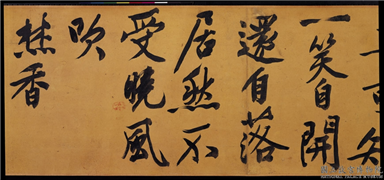 一笑自開
還自落
居然不
受曉風
吹
焚香